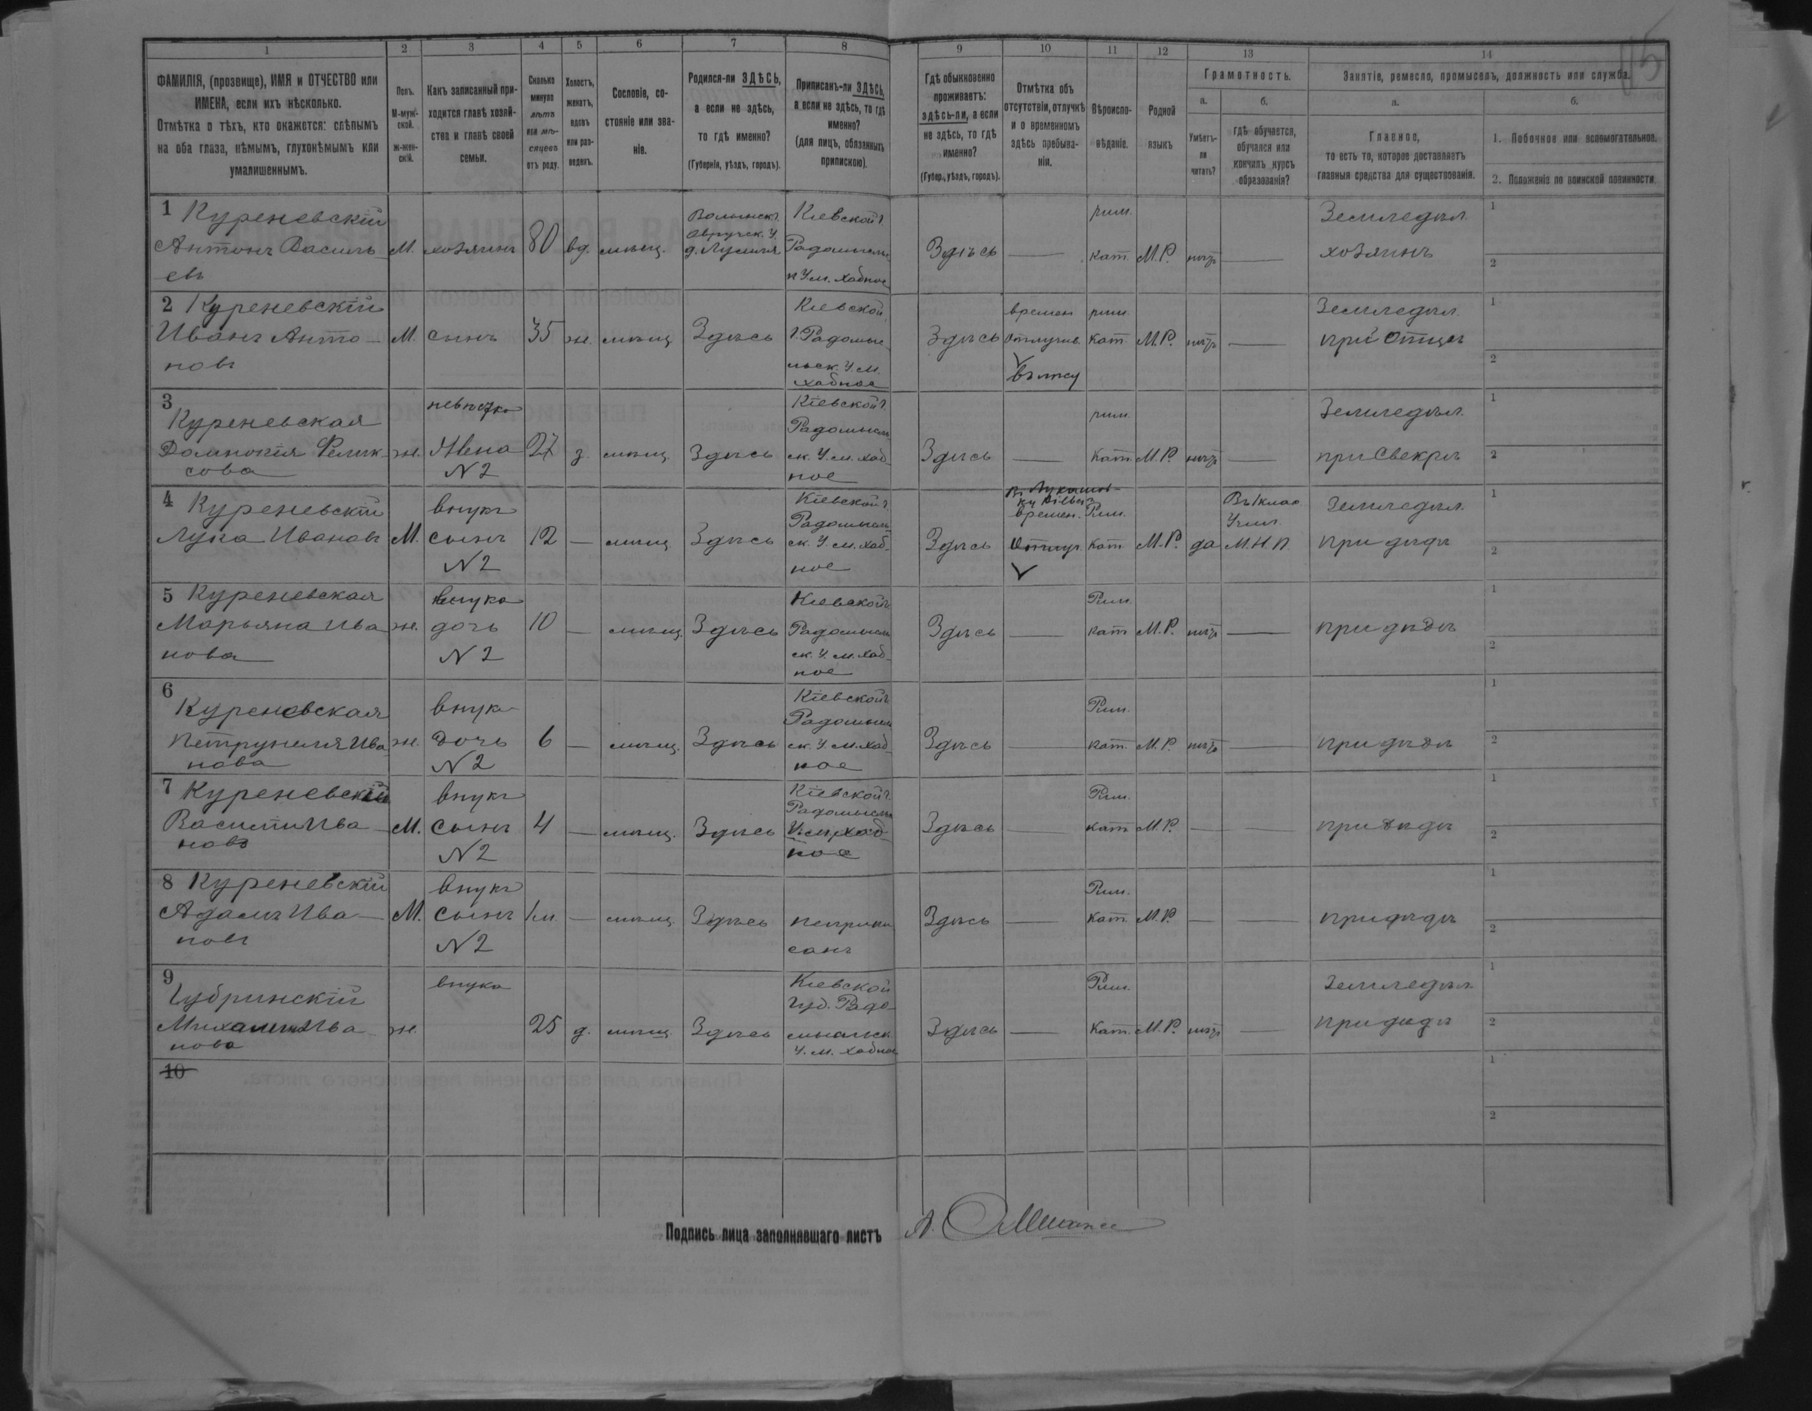 1 2 3 4 5 6 7 8 9 10 11 12 13 14
ФАМИЛІЯ, (прозвище), ИМЯ и ОТЧЕСТВО или
ИМЕНА, если ихъ нѣсколько.
Отмѣтка о тѣхъ, кто окажется: слѣпымъ
на оба глаза, нѣмымъ, глухонѣмымъ или
умалишеннымъ.
Полъ.
М-муж-
ской.
Ж-жен-
скій.
Какъ записанный при-
ходится главѣ хозяй-
ства и главѣ своей
семьи.
Сколько
минуло
лѣтъ
или мѣ-
сяцевъ
отъ роду.
Холостъ,
женатъ,
вдовъ
или раз-
веденъ.
Сословіе, со-
стояніе или зва-
ніе.
Родился-ли ЗДѢСЬ,
а если не здѣсь,
то гдѣ именно?
(Губернія, уѣздъ, городъ).
Приписанъ-ли ЗДѢСЬ,
а если не здѣсь, то гдѣ
именно?
(для лицъ, обязанныхъ
припискою).
Гдѣ обыкновенно
проживаетъ:
здѣсь-ли, а если
не здѣсь, то гдѣ
именно?
(Губер., уѣздъ, городъ).
Отмѣтка объ
отсутствіи, отлучкѣ
и о временномъ
здѣсь пребыва-
ніи.
Вѣроиспо-
вѣданіе.
Родной
языкъ
Грамотность.
а.
Умѣетъ-
ли
читать?
б.
гдѣ обучается,
обучался или
кончилъ курсъ
образованія?
Занятіе, ремесло, промыселъ, должность или служба.
а.
Главное,
то есть то, которое доставляетъ
главныя средства для существованія.
б.
1. Побочное или вспомогательное.
2. Положеніе по воинской повинности.
1 Куреневскій
Антонъ Василь-
евъ
М. хозяинъ 80 вд. мѣщ.
Волынск.
Овручск. У.
Кіевской г.
Радомысль
У м. Хабное
Здѣсь — рим. кат. М.Р. нѣтъ —
Земледѣл.
хозяинъ
1
2
2 Куреневскій
Иванъ Анто-
новъ
М. сынъ 35 ж. мѣщ. Здѣсь
Кіевской
г. Радомыс
льск. У м.
Хабное
Здѣсь
времен
отлучив
рим.
кат М.Р. нѣтъ —
Земледѣл.
при Отцѣ
1
2
3
Куреневская
Фелик-
сова
ж.
невѣстка
Жена
N 2
27 з. мѣщ. Здѣсь
Кіевской г.
Радомысль
ск. У м. Хаб-
ное
Здѣсь — рим. кат М.Р. нѣтъ —
Земледѣл.
при Свекрѣ
1
2
4 Куреневскій
Лука Ивановъ
М.
внукъ
сынъ
N 2
12 — мѣщ Здѣсь
Кіевской г.
Радомысль
ск. У м. Хаб-
ное
Здѣсь
времен.
Отлуч
Рим.
кат М.Р. да
Въ 1 клас
Учил.
М.Н.П.
Земледѣл.
при дѣдѣ
1
2
5 Куреневская
Марьяна Ива
нова
ж.
внука
дочь
N 2
10 — мѣщ Здѣсь
Кіевской г.
Радомысль
ск. У м. Хаб-
ное
Здѣсь — Рим. кат М.Р. нѣтъ —
при дѣдѣ
1
2
6
Куреневская
Петрунеля Ива
нова
ж.
внука
дочь
N 2
6 — мѣщ. Здѣсь
Кіевской г.
Радомысль
ск. У м. Хаб-
ное
Здѣсь — Рим. кат. М.Р. нѣтъ —
при дѣдѣ
1
2
7 Куреневскій
Ива
новъ
М.
внукъ
сынъ
N 2
4 — мѣщ. Здѣсь
Кіевской г.
Радомысль
У. м. Хаб-
ное
Здѣсь — Рим. кат М.Р. — —
при дѣдѣ
1
2
8 Куреневскій
Адамъ Ива-
новъ
М.
внукъ
сынъ
N 2
1 м. — мѣщ Здѣсь
неприпи
санъ
Здѣсь — Рим. кат М.Р. — —
при дѣдѣ
1
2
9
Ива
нова
ж. внука 25 д. мѣщ Здѣсь
Кіевской
Губ. Радо-
мысльск
У. м. Хабное
Здѣсь — Рим. Кат. М.Р. нѣтъ —
Земледѣл.
при дѣдѣ
1
2
10
1
2
Подпись лица заполнявшаго листъ